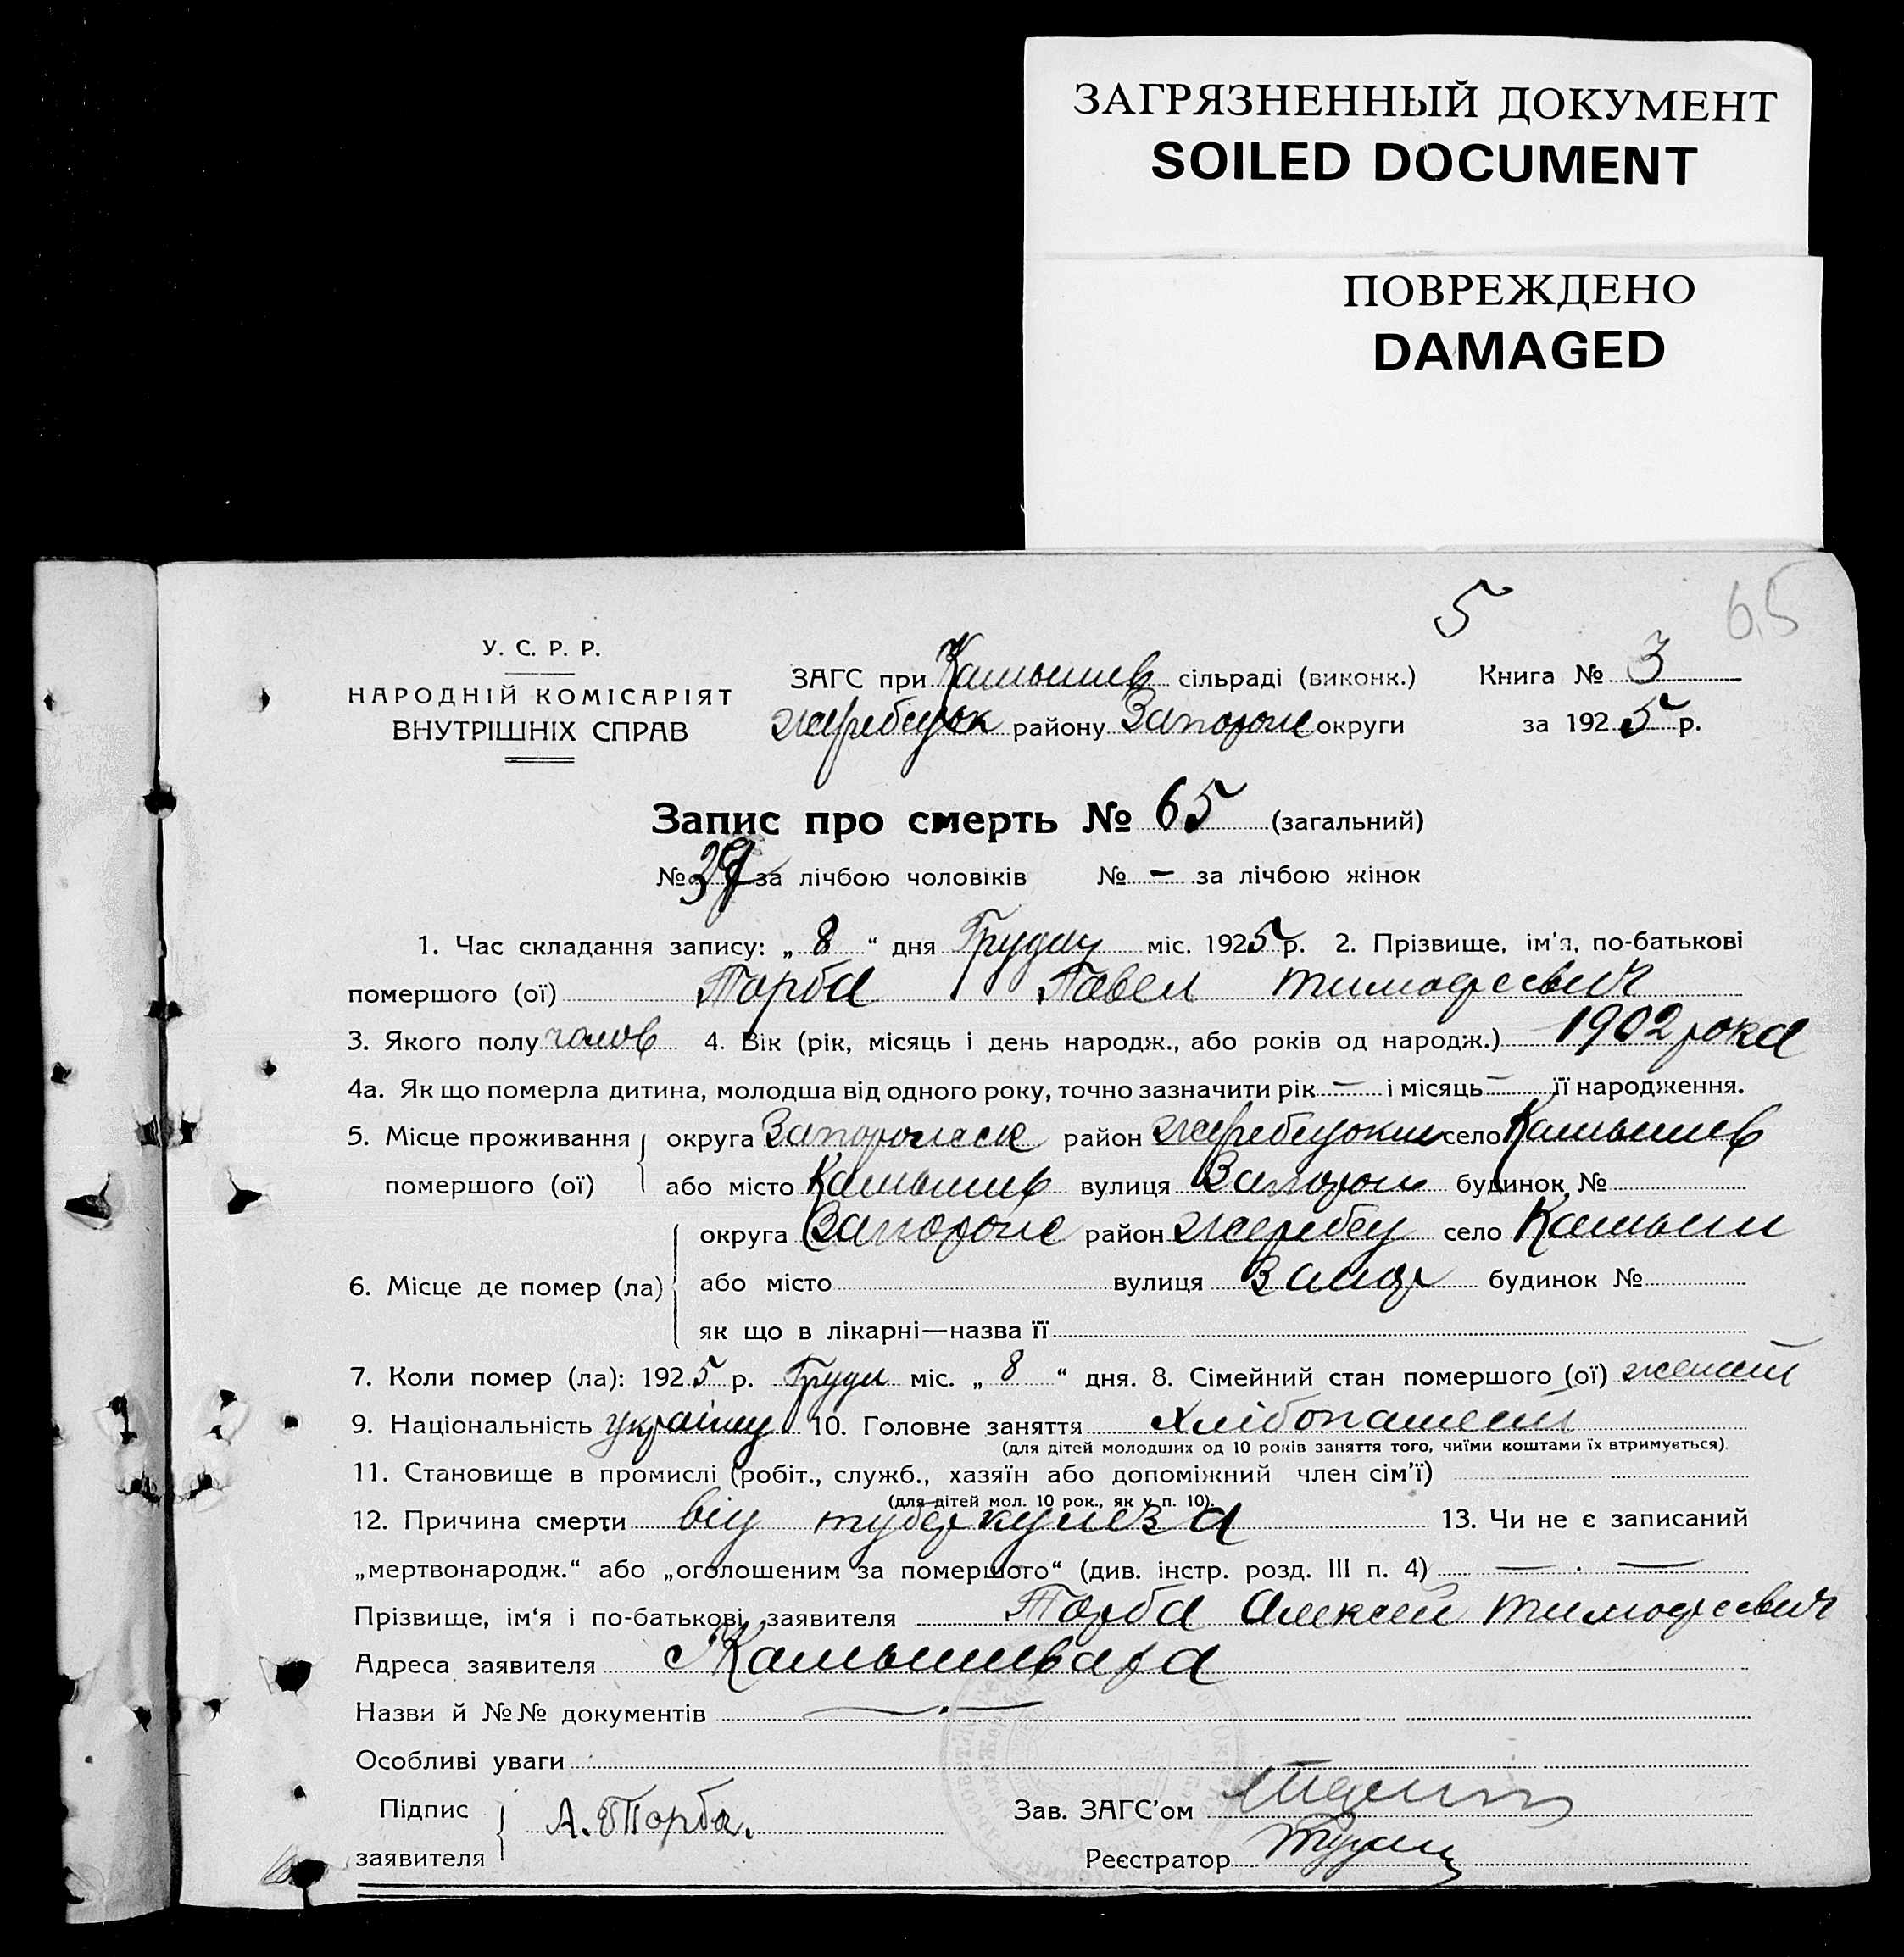 ЗАГРЯЗНЕННЫЙ ДОКУМЕНТ
SOILED DOCUMENT
ПОВРЕЖДЕНО
DAMAGED
5 65
У. С. Р. Р.
НАРОДНІЙ КОМІСАРІЯТ
ВНУТРІШНІХ СПРАВ
ЗАГС при Камышев сільраді (виконк.) Книга № 3
Жеребецьк району Запорож округи за 1925 р.
Запис про смерть № 65 (загальний)
№ за лічбою чоловіків № - за лічбою жінок
1. Час складання запису: „ 8 “ дня Грудня міс. 1925 р. 2. Прізвище, ім'я, по-батькові
помершого (ої) Торба Павел Тимофеевич
3. Якого полу чолов 4. Вік (рік, місяць і день народж., або років од народж.) 1902 рока
4а. Як що померла дитина, молодша від одного року, точно зазначити рік — і місяць — її народження.
5. Місце проживання помершого (ої)
округа Запорожск район Жеребецьким село Камышев
або місто Камышев вулиця Запорож будинок №
6. Місце де помер (ла)
округа Запорож район Жеребец село Камыш
або місто вулиця будинок №
як що в лікарні—назва її
7. Коли помер (ла): 1925 р. Грудн міс. „ 8 “ дня. 8. Сімейний стан помершого (ої) женат
9. Національність украінц 10. Головне заняття хлібопашест
(для дітей молодших од 10 років заняття того, чиїми коштами їх втримується).
11. Становище в промислі (робіт., служб., хазяїн або допоміжний член сім'ї)
(для дітей мол. 10 рок., як у п. 10).
12. Причина смерти від туберкулеза 13. Чи не є записаний
„мертвонародж.“ або „оголошеним за помершого“ (див. інстр. розд. III п. 4) — . —
Прізвище, ім'я і по-батькові заявителя Торба Алексей Тимофеевич
Адреса заявителя Камышеваха
Назви й №№ документів — . —
Особливі уваги
Підпис заявителя А. Торба.
Зав. ЗАГС'ом
Реєстратор